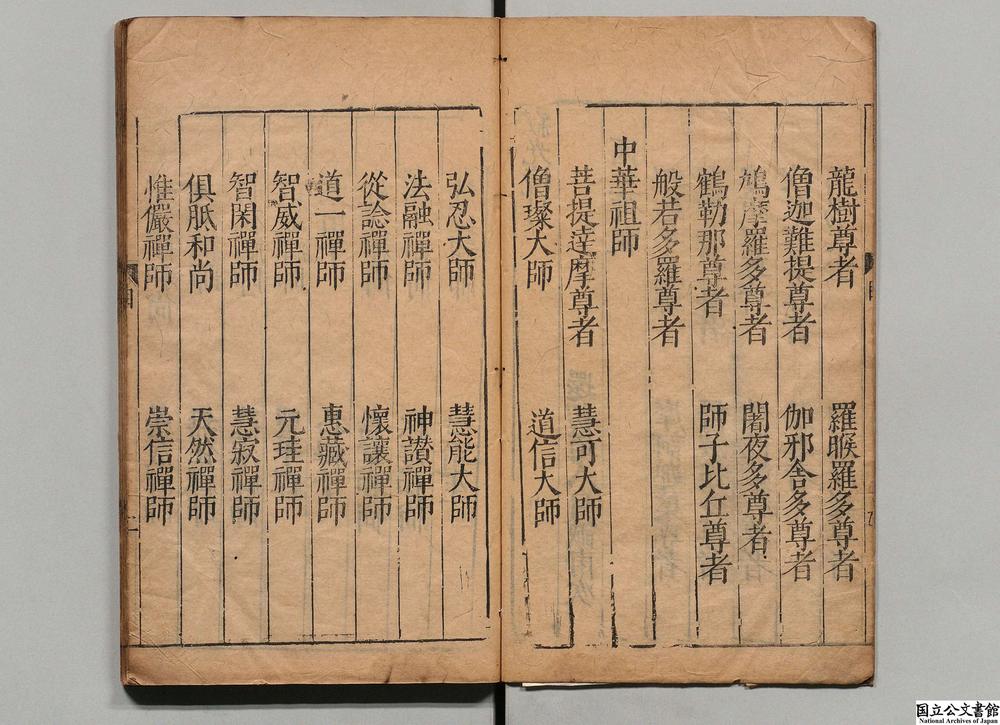 龍樹尊者　羅睺羅多尊者
僧迦難提尊者　伽邪舍多尊者
鳩摩羅多尊者　闍夜多尊者
鶴勒那尊者　師子比丘尊者
般若多羅尊者
中華祖師
菩提達摩尊者　慧可大師
僧璨大師　道信大師
弘忍大師　慧能大師
法融禪師　神讚禪師
從諗禪師　懷讓禪師
道一禪師　惠藏禪師
智威禪師　元珪禪師
智閑禪師　慧寂禪師
俱胝和尚　天然禪師
惟儼禪師　崇信禪師
国立公文書館
National Archives of Japan